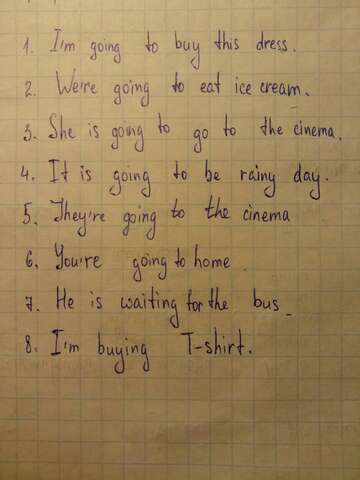 1. I'm going to buy this dress.
2. We're going to eat ice cream.
3. She is going to go to the cinema.
4. It is going to be rainy day.
5. They're going to the cinema
6. You're going to home.
7. He is waiting for the bus.
8. I'm buying T-shirt.